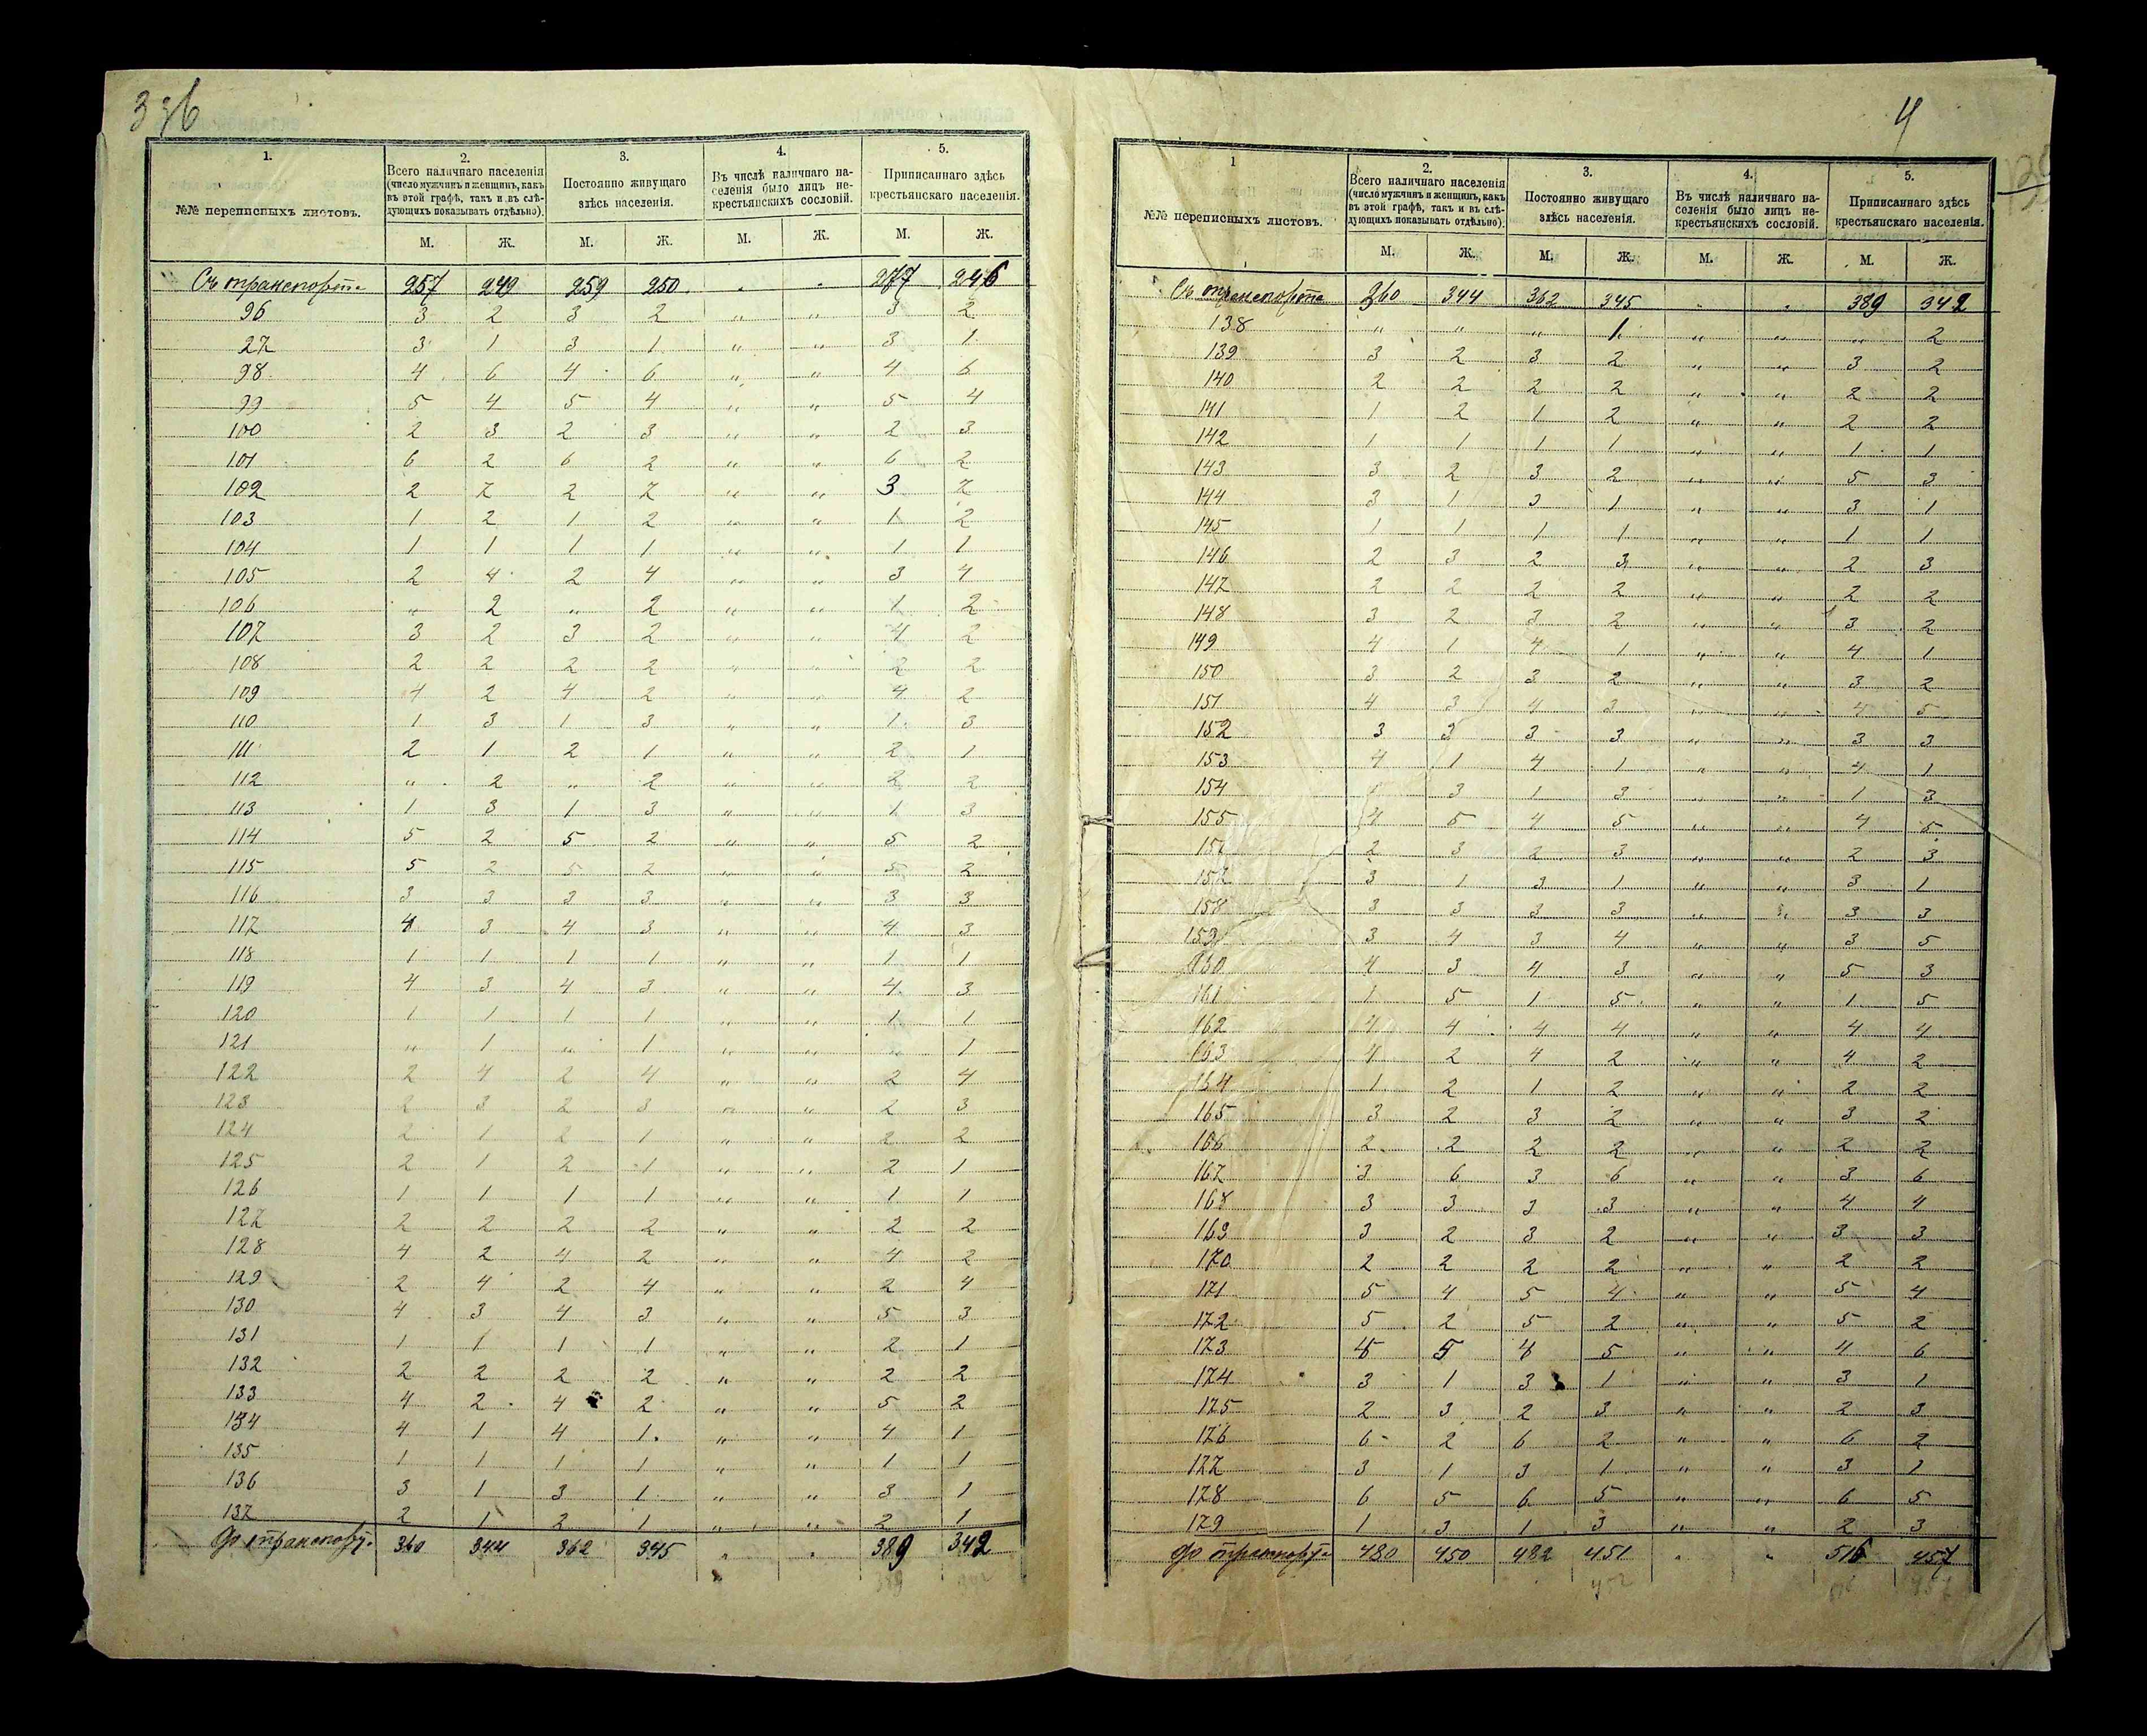 336
1. 2. 3. 4. 5.
№№ переписныхъ листовъ.
Всего наличнаго населенія
(число мужчинъ и женщинъ, какъ
въ этой графѣ, такъ и въ слѣ-
дующихъ показывать отдѣльно).
Постоянно живущаго
здѣсь населенія.
Въ числѣ наличнаго на-
селенія было лицъ не-
крестьянскихъ сословій.
Приписаннаго здѣсь
крестьянскаго населенія.
М. Ж. М. Ж. М. Ж. М. Ж.
Съ транспорта 257 249 259 250 " " 277 246
96 3 2 3 2 " " 3 2
97 3 1 3 1 " " 3 1
98 4 6 4 6 " " 4 6
99 5 4 5 4 " " 5 4
100 2 3 2 3 " " 2 3
101 6 2 6 2 " " 6 2
102 2 7 2 7 " " 3 7
103 1 2 1 2 " " 1 2
104 1 1 1 1 " " 1 1
105 2 4 2 4 " " 3 4
106 " 2 " 2 " " 1 2
107 3 2 3 2 " " 4 2
108 2 2 2 2 " " 2 2
109 4 2 4 2 " " 4 2
110 1 3 1 3 " " 1 3
111 2 1 2 1 " " 2 1
112 " 2 " 2 " " 2 2
113 1 3 1 3 " " 1 3
114 5 2 5 2 " " 5 2
115 5 2 5 2 " " 5 2
116 3 3 3 3 " " 3 3
117 4 3 4 3 " " 4 3
118 1 1 1 1 " " 1 1
119 4 3 4 3 " " 4 3
120 1 1 1 1 " " 1 1
121 " 1 " 1 " " " 1
122 2 4 2 4 " " 2 4
123 2 3 2 3 " " 2 3
124 2 1 2 1 " " 2 2
125 2 1 2 1 " " 2 1
126 1 1 1 1 " " 1 1
127 2 2 2 2 " " 2 2
128 4 2 4 2 " " 4 2
129 2 4 2 4 " " 2 4
130 4 3 4 3 " " 5 3
131 1 1 1 1 " " 2 1
132 2 2 2 2 " " 2 2
133 4 2 4 2 " " 5 2
134 4 1 4 1 " " 4 1
135 1 1 1 1 " " 1 1
136 3 1 3 1 " " 3 1
137 2 1 2 1 " " 2 1
До транспорт. 360 344 362 345 " " 389 342
389 342
4
1 2. 3. 4. 5.
№№ переписныхъ листовъ.
Всего наличнаго населенія
(число мужчинъ и женщинъ, какъ
въ этой графѣ, такъ и въ слѣ-
дующихъ показывать отдѣльно).
Постоянно живущаго
здѣсь населенія.
Въ числѣ наличнаго на-
селенія было лицъ не-
крестьянскихъ сословій.
Приписаннаго здѣсь
крестьянскаго населенія.
М. Ж. М. Ж. М. Ж. М. Ж.
Съ транспорта 360 344 362 345 " " 389 342
138 " " " 1 " " " 2
139 3 2 3 2 " " 3 2
140 2 2 2 2 " " 2 2
141 1 2 1 2 " " 2 2
142 1 1 1 1 " " 1 1
143 3 2 3 2 " " 5 3
144 3 1 3 1 " " 3 1
145 1 1 1 1 " " 1 1
146 2 3 2 3 " " 2 3
147 2 2 2 2 " " 2 2
148 3 2 3 2 " " 3 2
149 4 1 4 1 " " 4 1
150 3 2 3 2 " " 3 2
151 4 3 4 3 " " 4 5
152 3 3 3 3 " " 3 3
153 4 1 4 1 " " 4 1
154 1 3 1 3 " " 1 3
155 4 5 4 5 " " 4 5
156 2 3 2 3 " " 2 3
157 3 1 3 1 " " 3 1
158 3 3 3 3 " " 3 3
159 3 4 3 4 " " 3 5
160 4 3 4 3 " " 5 3
161 1 5 1 5 " " 1 5
162 4 4 4 4 " " 4 4
163 4 2 4 2 " " 4 2
164 1 2 1 2 " " 2 2
165 3 2 3 2 " " 3 2
166 2 2 2 2 " " 2 2
167 3 6 3 6 " " 3 6
168 3 3 3 3 " " 4 4
169 3 2 3 2 " " 3 3
170 2 2 2 2 " " 2 2
171 5 4 5 4 " " 5 4
172 5 2 5 2 " " 5 2
173 4 5 4 5 " " 4 6
174 3 1 3 1 " " 3 1
175 2 3 2 3 " " 2 3
176 6 2 6 2 " " 6 2
177 3 1 3 1 " " 3 1
178 6 5 6 5 " " 6 5
179 1 3 1 3 " " 2 3
До транспорта 480 450 482 451 " " 516 457
452 516 457